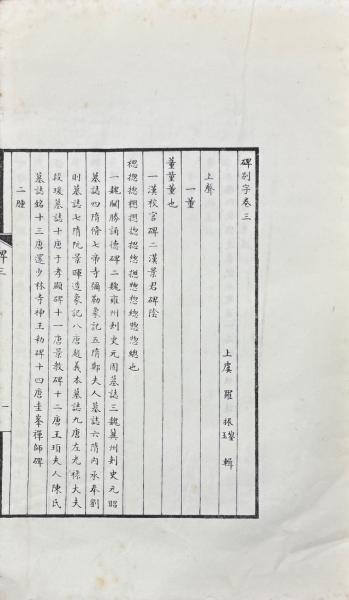 碑別字卷三
上虞 羅 振 輯
上聲
一董
董董董也
一漢校官碑二漢景君碑陰
總也
一魏闞勝誦德碑二魏雍州刺史元固墓誌三魏冀州刺史元昭
墓誌四隋脩七帝寺彌勒象記五隋鄭夫人墓誌六隋內承奉劉
則墓誌七隋阮景暉造象記八唐趙義本墓誌九唐左光祿大夫
段瑗墓誌十唐于孝顯碑十一唐景教碑十二唐王頊夫人陳氏
墓誌銘十三唐還少林寺神王勑碑十四唐圭峯禪師碑
二腫
碑三
一